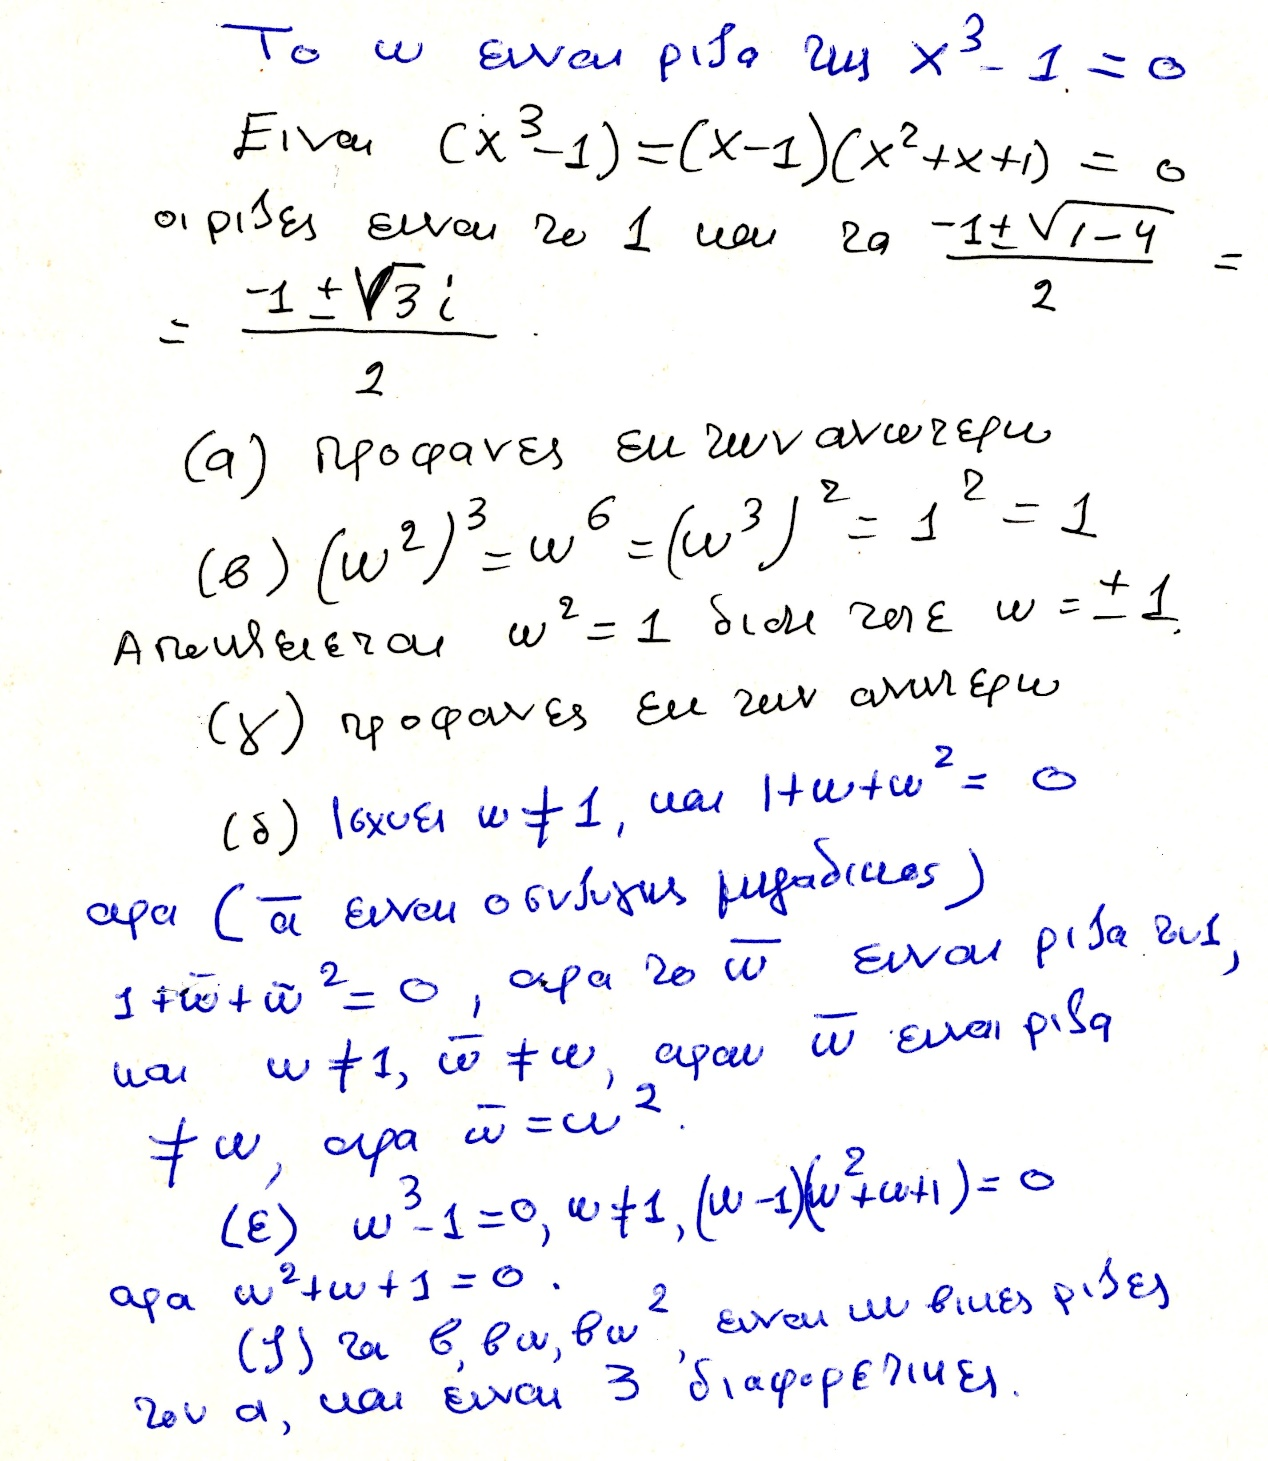 Το ω ειναι ριζα της x³ - 1 = 0
Ειναι (x³-1) = (x-1)(x²+x+1) = 0
οι ριζες ειναι το 1 και τα (-1±√(1-4))/2 =
= (-1±√3 i)/2.
(α) προφανες εκ των ανωτερω
(β) (ω²)³ = ω⁶ = (ω³)² = 1² = 1
Αποκλειεται ω² = 1 διοτι τοτε ω = ±1.
(γ) προφανες εκ των ανωτερω
(δ) Ισχυει ω ≠ 1, και 1+ω+ω² = 0
αρα (ᾱ ειναι ο συζυγης μιγαδικος)
1+ω̄+ω̄² = 0, αρα το ω̄ ειναι ριζα του 1,
και ω ≠ 1, ω̄ ≠ ω, αρα ω̄ ειναι ριζα
≠ ω, αρα ω̄ = ω².
(ε) ω³-1=0, ω≠1, (ω-1)(ω²+ω+1)=0
αρα ω²+ω+1=0.
(ζ) τα β, βω, βω², ειναι κυβικες ριζες
του α, και ειναι 3 διαφορετικες.